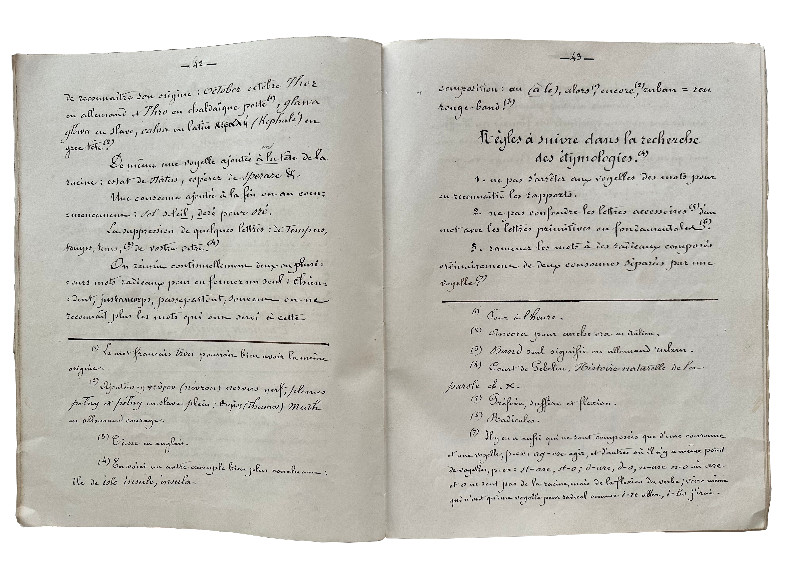 — 42 —
de reconnaître son origine : October octobre Thor
en allemand et Thro en chaldaïque porte (1), glawa
glowa en slave, calva en latin (Kephalé) en
grec tête. (2)
De même une voyelle ajoutée à la tête de la
racine : estat de status, espérer de sperare &.
Une consonne ajoutée à la fin ou au com-
mencement : Sol soleil, pour
La suppression de quelques lettres : de tempus,
temps, tems, (3) de vostre votre. (4)
On réunit continuellement deux ou plusi-
eurs mots radicaux pour en former un seul :
justaucorps, passepartout, souvent on ne
reconnaît plus les mots qui ont servi à cette
(1) Le mot français pourrait bien avoir la même
origine.
(2) Ajoutons (nevron) nervus nerf ; plenus
polny et polny en slave plein ; (Thumos) Muth
en allemand courage.
(3) en anglais.
(4) En voici un autre exemple bien plus concluant :
île de isle insule, insula.
— 43 —
composition : au (à le), alors (1) encore (2) ruban =
rouge-band (3)
Règles à suivre dans la recherche
des étymologies. (4)
1. ne pas s'arrêter aux voyelles des mots pour
en reconnaître les rapports.
2. ne pas confondre les lettres accessoires (5) d'un
mot avec les lettres primitives ou fondamentales (6).
3. ramener les mots à des radicaux composés
ordinairement de deux consonnes séparées par une
voyelle. (7)
(1) Pour à l'heure.
(2) Ancora pour anche ora en italien.
(3) Band seul signifie en allemand ruban.
(4) Court de Gebelin, Histoire naturelle de la
parole &. &.
(5) Préfixe, suffixe et flexion.
(6) Radicales.
(7) Il y en a aussi qui ne sont composés que d'une consonne
et d'une voyelle, p. ex : ag-ere agir, et d'autres où il n'y a même point
de voyelles, p. ex : st-are, st-o ; d-are, d-o, n-are n-o où are
et o ne sont pas de la racine, mais de la flexion du verbe ; voire même
qui n'ont qu'une voyelle pour radical comme i-re aller, i-bo j'irai.